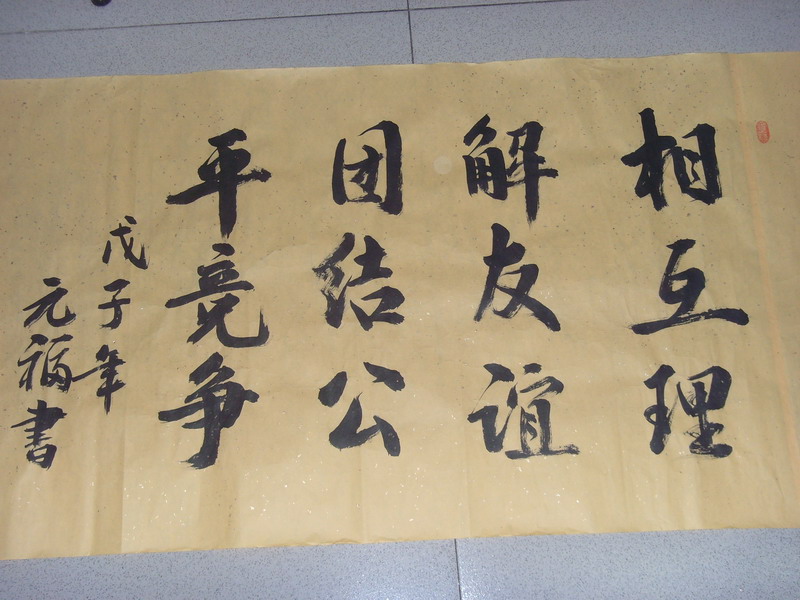 相互理
解友谊
团结公
平竞争
戊子年
元福书